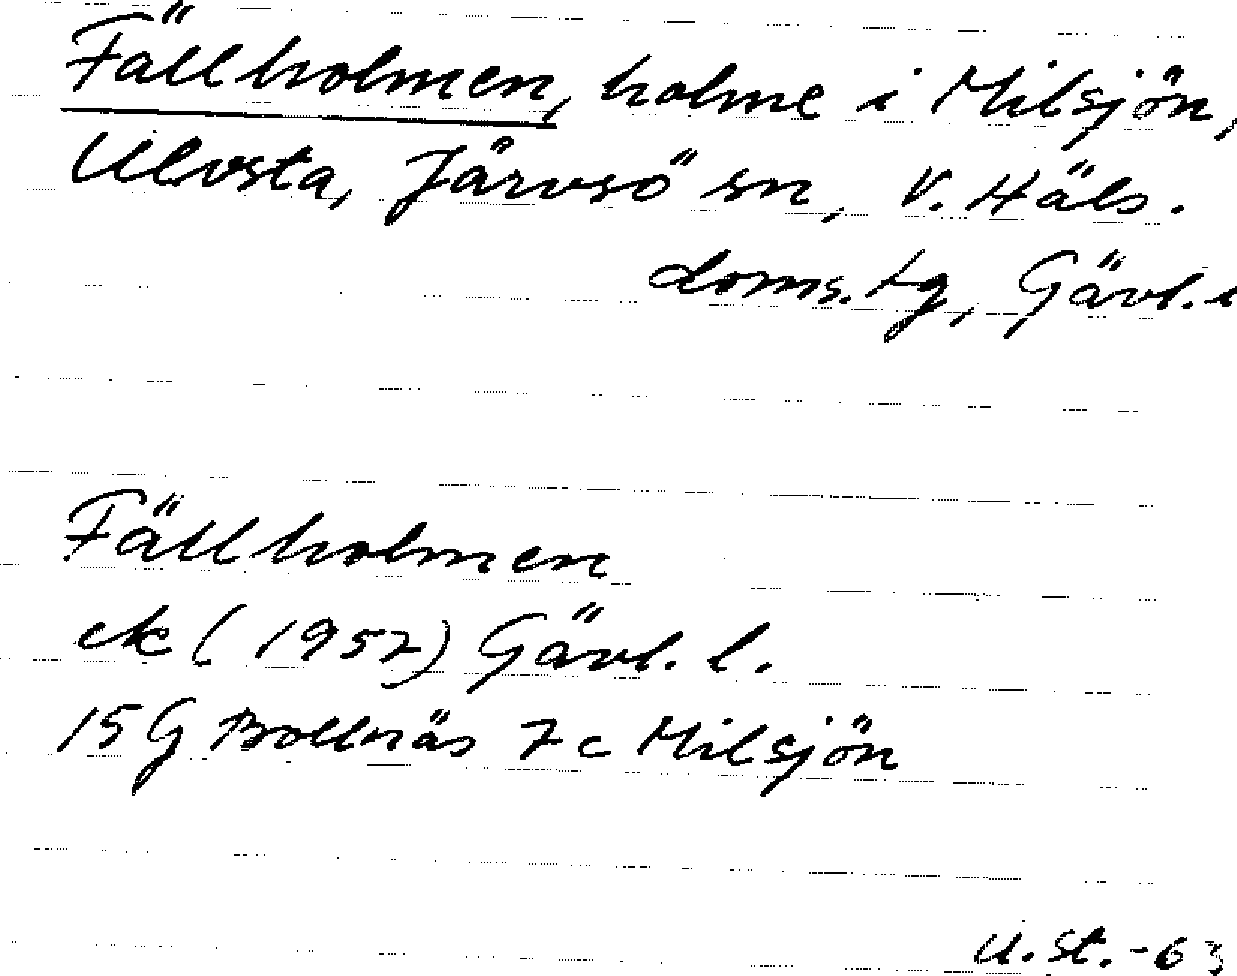 Fällholmen, holme i Milsjön,
Ulvsta, Järvsö sn, V. Häls.
doms.tg, Gävl.
Fällholmen
ek (1957) Gävl. l.
15G Bollnäs 7c Milsjön
U.St.-63